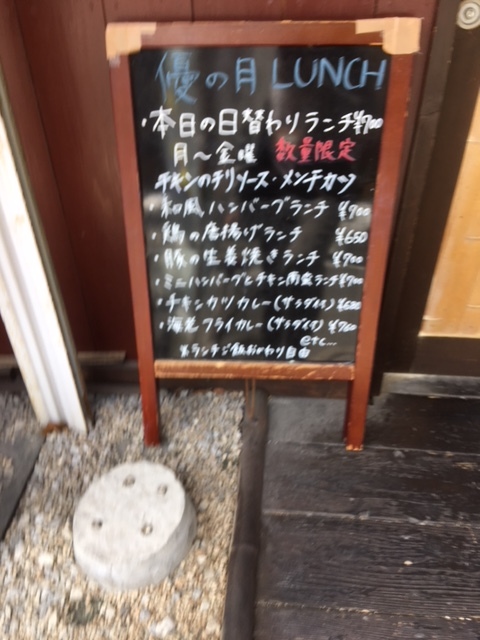 優の月 LUNCH
・本日の日替わりランチ¥700
月〜金曜 数量限定
チキンのチリソース・メンチカツ
・和風ハンバーグランチ ¥700
・鶏の唐揚げランチ ¥650
・豚の生姜焼きランチ ¥700
・ミニハンバーグとチキン南蛮ランチ¥700
・チキンカツカレー(サラダ付) ¥680
・海老フライカレー(サラダ付) ¥760
etc...
※ランチご飯おかわり自由